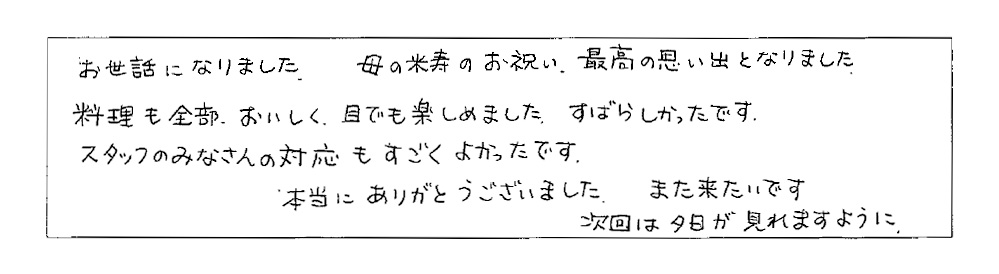 お世話になりました。　母の米寿のお祝い、最高の思い出となりました
料理も全部、おいしく、目でも楽しめました。すばらしかったです。
スタッフのみなさんの対応もすごくよかったです。
本当にありがとうございました。　また来たいです
次回は夕日が見れますように。